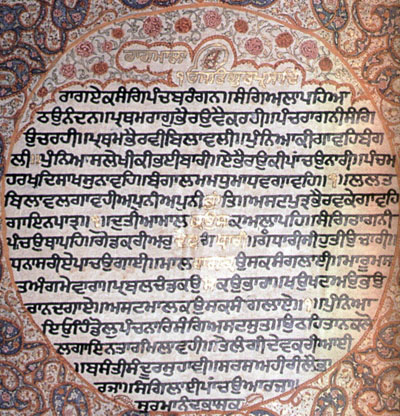 ਰਾਗ ਮਾਲਾ
ੴ ਸਤਿਗੁਰ ਪ੍ਰਸਾਦਿ
ਰਾਗ ਏਕ ਸੰਗਿ ਪੰਚ ਬਰੰਗਨ ॥ ਸੰਗਿ ਅਲਾਪਹਿ ਆ
ਠਉ ਨੰਦਨ ॥ ਪ੍ਰਥਮ ਰਾਗੁ ਭੈਰਉ ਵੈ ਕਰਹੀ ॥ ਪੰਚ ਰਾਗਨੀ ਸੰਗਿ
ਉਚਰਹੀ ॥ ਪ੍ਰਥਮ ਭੈਰਵੀ ਬਿਲਾਵਲੀ ॥ ਪੁੰਨਿਆਕੀ ਗਾਵਹਿ ਬੰਗ
ਲੀ ॥ ਪੁੰਨਿਆ ਸਲੇਖੀ ਕੀ ਭਈ ਬਾਰੀ ॥ ਏ ਭੈਰਉ ਕੀ ਪਾਚਉ ਨਾਰੀ ॥ ਪੰਚਮ
ਹਰਖ ਦਿਸਾਖ ਸੁਨਾਵਹਿ ॥ ਬੰਗਾਲਮ ਮਧੁ ਮਾਧਵ ਗਾਵਹਿ ॥੧॥ ਲਲਤ
ਬਿਲਾਵਲ ਗਾਵਹੀ ਅਪੁਨੀ ਅਪੁਨੀ ਭਾਂਤਿ ॥ ਅਸਟ ਪੁਤ੍ਰ ਭੈਰਵ ਕੇ ਗਾਵਹਿ
ਗਾਇਨ ਪਾਤ੍ਰ ॥੧॥ ਦੁਤੀਆ ਮਾਲਕਉਸਕ ਆਲਾਪਹਿ ॥ ਸੰਗਿ ਰਾਗਨੀ
ਪਾਚਉ ਥਾਪਹਿ ॥ ਗੋਂਡਕਰੀ ਅਰੁ ਦੇਵਗੰਧਾਰੀ ॥ ਗੰਧਾਰੀ ਸੀਹੁਤੀ ਉਚਾਰੀ ॥
ਧਨਾਸਰੀ ਏ ਪਾਚਉ ਗਾਈ ॥ ਮਾਲ ਰਾਗ ਕਉਸਕ ਸੰਗਿ ਲਾਈ ॥ ਮਾਰੂ ਮਸ
ਤਅੰਗ ਮੇਵਾਰਾ ॥ ਪ੍ਰਬਲ ਚੰਡ ਕਉਸਕ ਉਭਾਰਾ ॥ ਖਉਖਟ ਅਉ ਭਉ
ਰਾਨਦ ਗਾਏ ॥ ਅਸਟ ਮਾਲਕਉਸਕ ਸੰਗਿ ਲਾਏ ॥੧॥ ਪੁੰਨਿਆ
ਇਓ ਹਿੰਡੋਲੁ ਪੰਚ ਨਾਰਿ ਸੰਗਿ ਅਸਟ ਸੁਤ ॥ ਉਠਹਿ ਤਾਨ ਕਲੋ
ਲ ਗਾਇਨ ਤਾਰ ਮਿਲਾਵਹੀ ॥੧॥ ਤੇਲੰਗੀ ਦੇਵਕਰੀ ਆਈ
॥ ਬਸੰਤੀ ਸੰਦੂਰ ਸੁਹਾਈ ॥ ਸਰਸ ਅਹੀਰੀ ਲੈ ਭਾ
ਰਜਾ ॥ ਸੰਗਿ ਲਾਈ ਪਾਂਚਉ ਆਰਜਾ ॥
ਸੁਰਮਾਨੰਦ ਭਾਸਕ